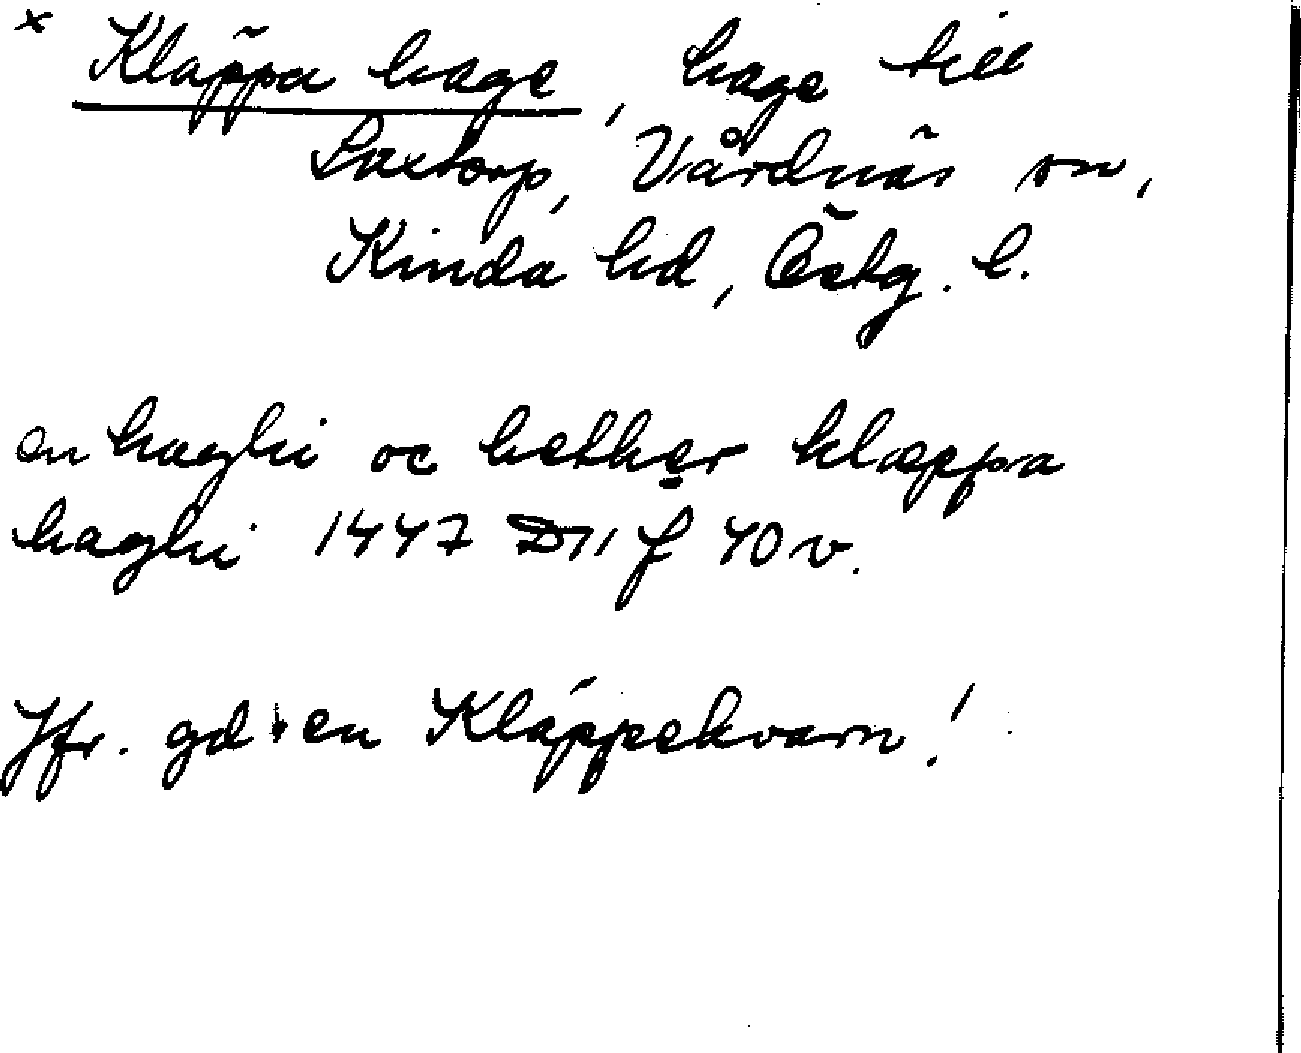 × Kläppa hage, hage till
Saxtorp, Vårdnäs sn,
Kinda hd, Östg. l.
en haghi oc hether klæppa
haghi 1447 D11 f 40 v.
Jfr. gd en Kläppekvarn!